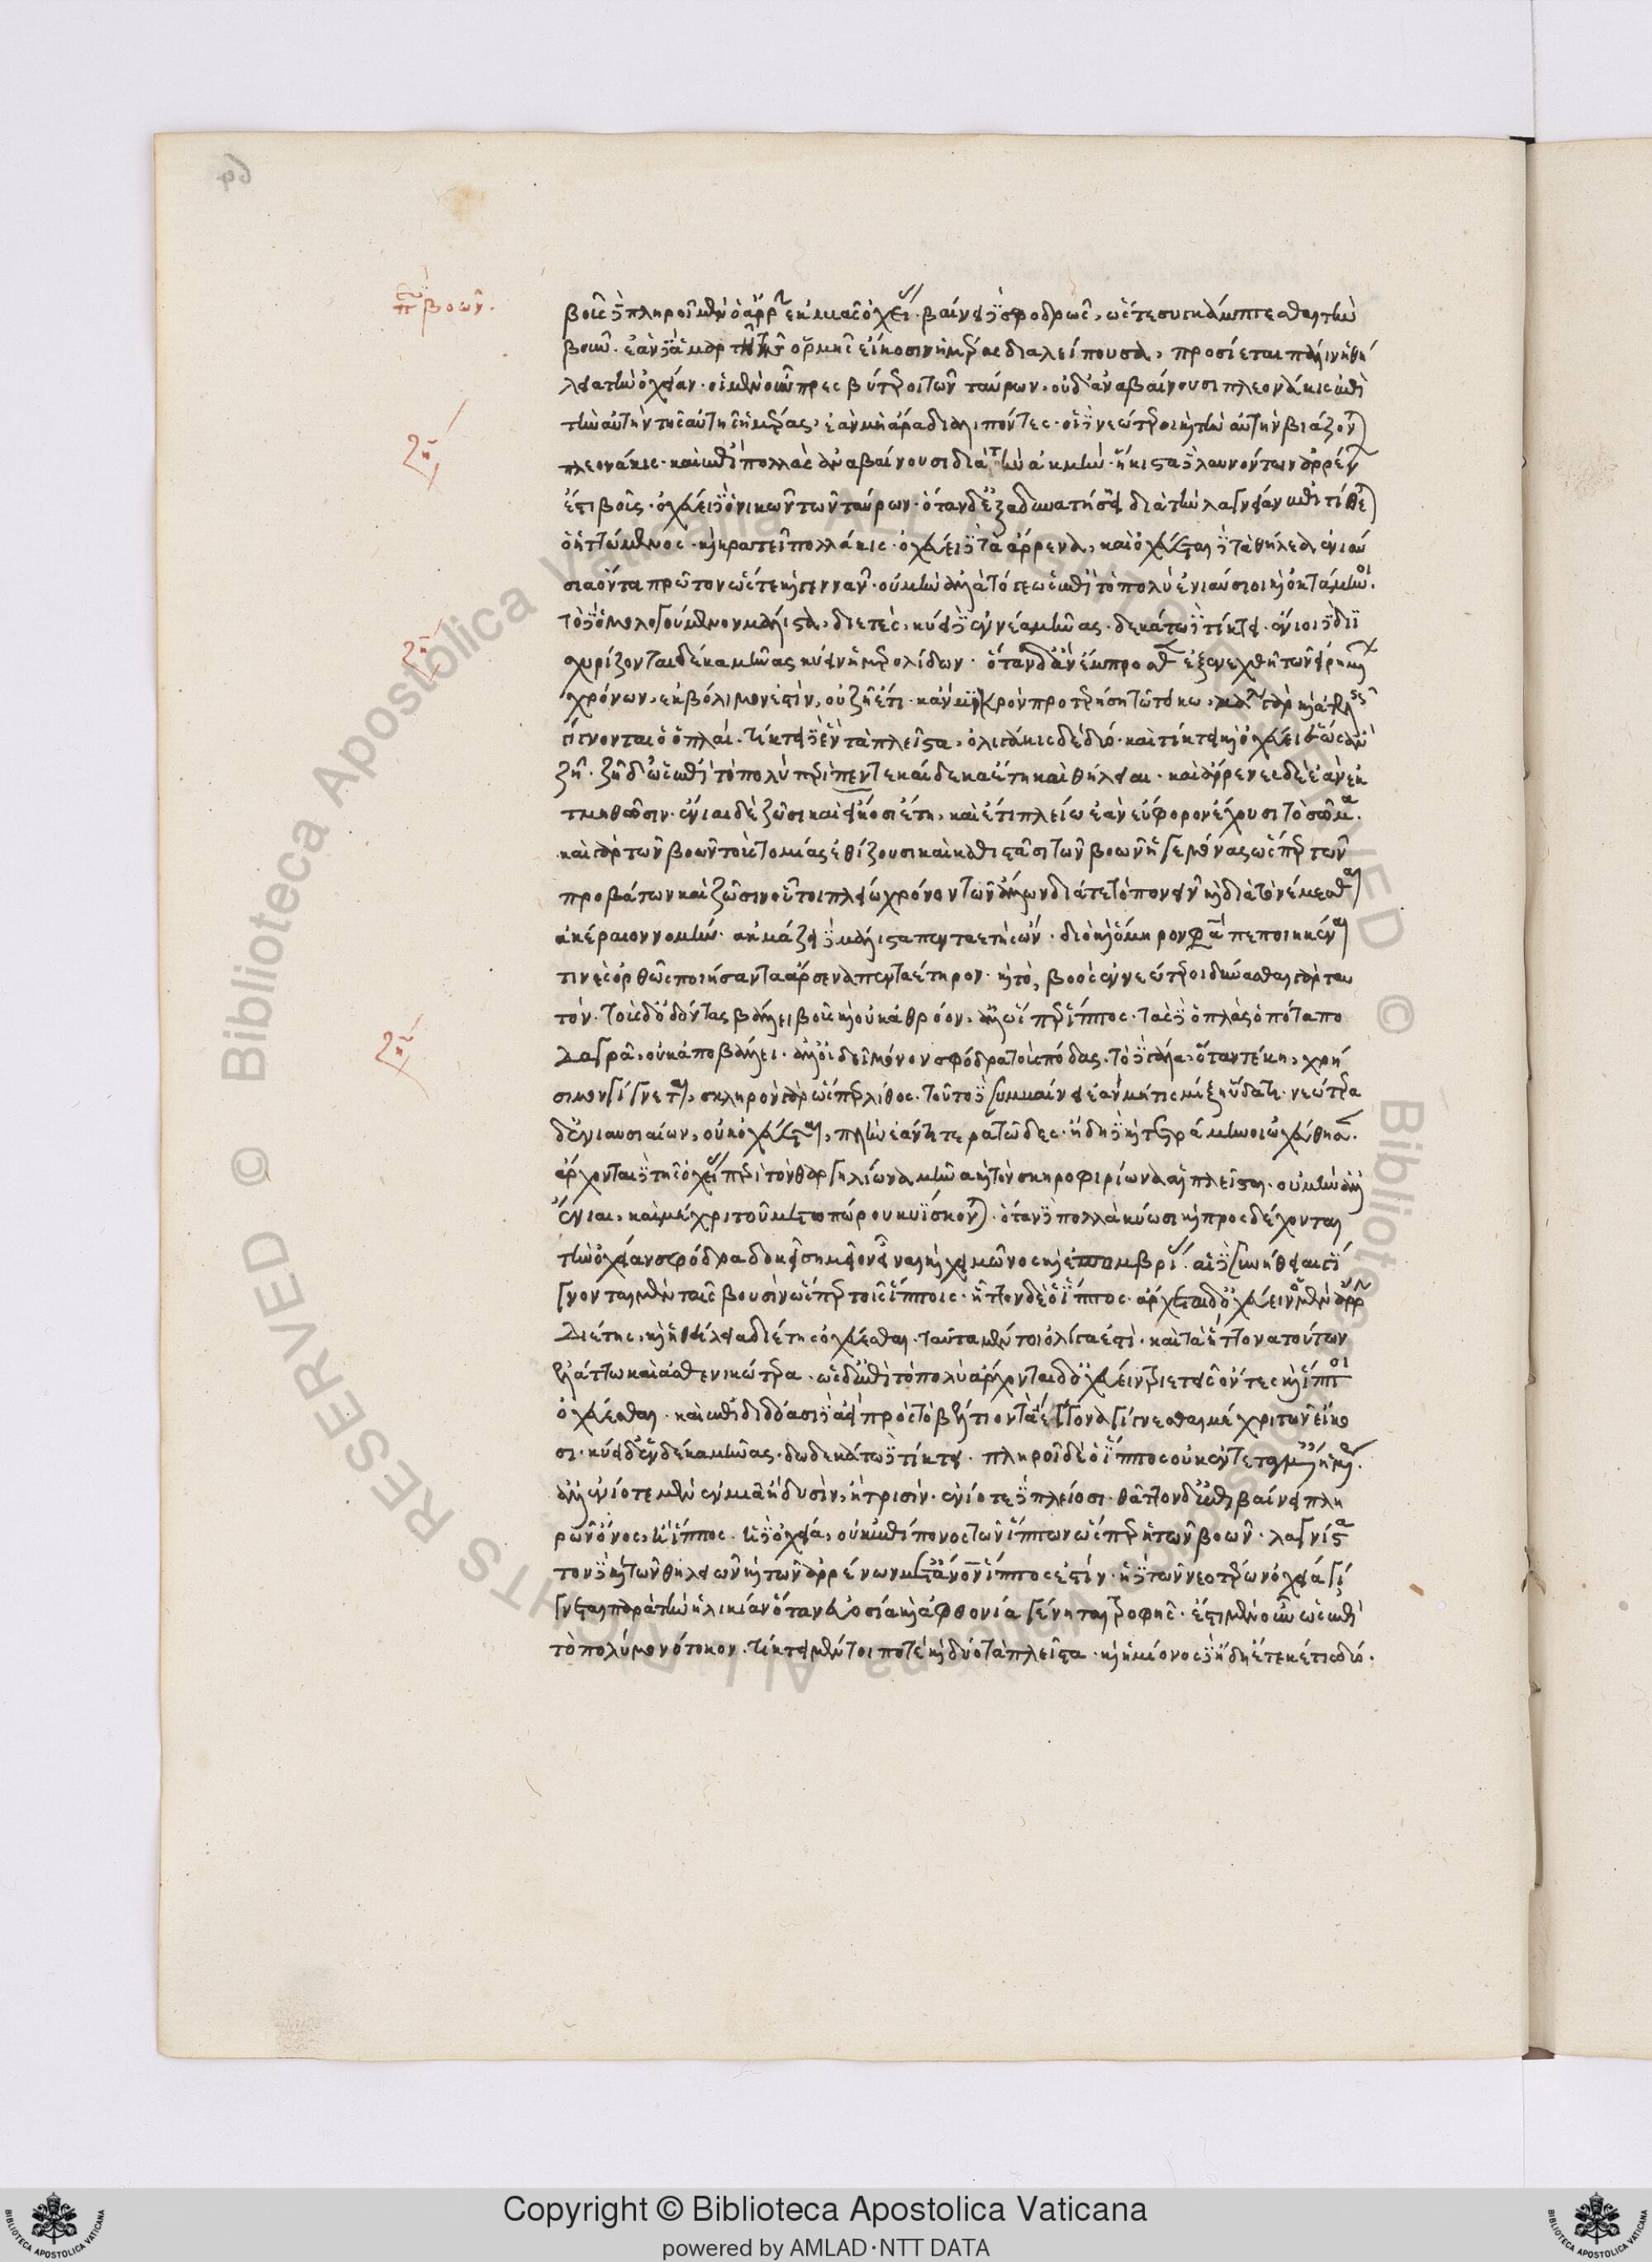 περὶ βοῶν.
βοῦς δὲ πληροῖ μὲν ὁ ἄρρην ἐκ μιᾶς ὀχείας· βαίνει δὲ σφοδρῶς, ὥστε συγκάμπτεσθαι τὴν
βοῦν. ἐὰν δὲ ἁμάρτῃ τῆς ὁρμῆς εἴκοσιν ἡμέρας διαλείπουσα, προσίεται πάλιν ἡ θή
λεια τὴν ὀχείαν. οἱ μὲν οὖν πρεσβύτεροι τῶν ταύρων, οὐδ' ἀναβαίνουσι πλεονάκις ἐπὶ
τὴν αὐτὴν τῆς αὐτῆς ἡμέρας, ἐὰν μὴ ἄρα διαλιπόντες. οἱ δὲ νεώτεροι καὶ τὴν αὐτὴν βιάζονται
πλεονάκις. καὶ ἐπὶ πολλὰς ἀναβαίνουσι διὰ τὴν ἀκμήν. ἥκιστα δὲ λαγνὸν τῶν ἀρρένων
ἐστὶ βοῦς. ὀχεύει δὲ ὁ νικῶν τῶν ταύρων. ὅταν δ' ἐξαδυνατήσῃ διὰ τὴν λαγνείαν ἐπιτίθεται
ὁ ἡττώμενος. καὶ κρατεῖ πολλάκις. ὀχεύει δὲ τὰ ἄρρενα, καὶ ὀχεύεται δὲ τὰ θήλεα ἐνιαύ
σια ὄντα πρῶτον ὥστε καὶ γεννᾶν. οὐ μὴν ἀλλὰ τό γε ὡς ἐπὶ τὸ πολὺ ἐνιαύσιοι καὶ ὀκτάμηνοι.
τὸ δὲ ὁμολογούμενον μάλιστα, διετές. κύει δὲ ἐννέα μῆνας. δεκάτῳ δὲ τίκτει. ἔνιοι δὲ διϊ
σχυρίζονται δέκα μῆνας κύειν ἡμερολεγδόν. ὅταν δ' ἂν ἔμπροσθεν ἐξενεχθῇ τῶν εἰρημένων
χρόνων, ἐκβόλιμον ἐστὶν, οὐ ζῇ ἔτι. κἂν μικρὸν προτερήσῃ τῷ τόκῳ. μαλακαὶ γὰρ καὶ ἀτελεῖς
γίνονται ὁπλαί. τίκτει δὲ ἓν τὰ πλεῖστα, ὀλιγάκις δὲ δύο. καὶ τίκτει καὶ ὀχεύει ἕως ἂν
ζῇ. ζῇ δ' ὡς ἐπὶ τὸ πολὺ περὶ πεντεκαίδεκα ἔτη καὶ θήλειαι. καὶ ἄρρενες δὲ ἐὰν ἐκ
τμηθῶσιν. ἔνιαι δὲ ζῶσι καὶ εἴκοσι ἔτη, καὶ ἔτι πλείω ἐὰν εὔφορον ἔχουσι τὸ σῶμα.
καὶ γὰρ τῶν βοῶν τοὺς τομίας ἐθίζουσι καὶ καθιστᾶσι τῶν βοῶν ἡγεμόνας ὥσπερ τῶν
προβάτων καὶ ζῶσιν οὗτοι πλείω χρόνον τῶν ἄλλων διά τε τὸ πονεῖν καὶ διὰ τὸ νέμεσθαι
ἀκέραιον νομήν. ἀκμάζει δὲ μάλιστα πενταετὴς ὤν. διὸ καὶ ὅμηρον φασὶ πεποιηκέναι
τινὲς ὀρθῶς ποιήσαντα ἄρσενα πενταέτηρον. καὶ τὸ, βοὸς ἐννεώροιο δύνασθαι γὰρ ταυ
τόν. τοὺς δ' ὀδόντας βάλλει βοῦς καὶ οὐκ ἀθρόον, ἀλλ' ὥσπερ ἵππος. τὰς δὲ ὁπλὰς ὁπόταν πο
δαγρᾷ, οὐκ ἀποβάλλει. ἀλλ' οἰδεῖ μόνον σφόδρα τοὺς πόδας. τὸ δὲ γάλα, ὅταν τέκῃ, χρή
σιμον γίγνεται, σκληρὸν γὰρ ὥσπερ λίθος. τοῦτο δὲ συμβαίνει ἐὰν μή τις μίξῃ ὕδατι. νεώτερα
δ' ἐνιαυσιαίων, οὐκ ὀχεύεται, πλὴν ἐάν τι τερατῶδες. ἤδη δὲ καὶ τετράμηνοι ὠχεύθησαν.
ἄρχονται δὲ τῆς ὀχείας περὶ τὸν θαργηλιῶνα μῆνα καὶ τὸν σκηροφιριῶνα αἱ πλεῖσται. οὐ μὴν ἀλλ'
ἔνιαι, καὶ μέχρι τοῦ μετοπώρου κυΐσκονται. ὅταν δὲ πολλὰ κύωσι καὶ προσδέχονται
τὴν ὀχείαν σφόδρα δοκεῖ σημεῖον εἶναι καὶ χειμῶνος καὶ ἐπομβρίας. αἱ δὲ συνήθειαι γί
γνονται μὲν ταῖς βουσὶν ὥσπερ τοῖς ἵπποις. ἧττον δὲ ὁ ἵππος. ἄρχεται δ' ὀχεύειν ὁ μὲν ἄρρην
διέτης, καὶ ἡ θήλεια διέτης ὀχεύεσθαι. ταῦτα μέντοι ὀλίγα ἐστὶ. καὶ τὰ ἔκγονα τούτων
ἐλάττω καὶ ἀσθενικώτερα. ὡς δ' ἐπὶ τὸ πολὺ ἄρχονται δ' ὀχεύειν τριετεῖς ὄντες καὶ ἵπποι
ὀχεύεσθαι. καὶ ἐπιδιδόασι δὲ ἀεὶ πρὸς τὸ βέλτιον τὰ ἔκγονα γίγνεσθαι μέχρι τῶν εἴκο
σι. κύει δ' ἕνδεκα μῆνας. δωδεκάτῳ δὲ τίκτει. πληροῖ δὲ ὁ ἵππος οὐκ ἐν τεταγμέναις ἡμέραις.
ἀλλ' ἐνίοτε μὲν ἐν μιᾷ ἢ δυσὶν, ἢ τρισίν. ἐνίοτε δὲ πλείοσι. θᾶττον δ' ἐπιβαίνει πλη
ρῶν ὄνος, ἢ ἵππος. ἡ δὲ ὀχεία, οὐκ ἐπίπονος τῶν ἵππων ὥσπερ ἡ τῶν βοῶν. λαγνίστα
τον δὲ καὶ τῶν θηλειῶν καὶ τῶν ἀρρένων μετὰ ἄνθρωπον ἵππος ἐστίν. ἡ δὲ τῶν νεωτέρων ὀχεία γί
γνεται παρὰ τὴν ἡλικίαν ὅταν εὐβοσία καὶ ἀφθονία γένηται τροφῆς. ἔστι μὲν οὖν ὡς ἐπὶ
τὸ πολὺ μονοτόκον. τίκτει μέντοι ποτὲ καὶ δύο τὰ πλεῖστα. καὶ ἡμίονος δὲ ἤδη ἔτεκέ τις δύο.